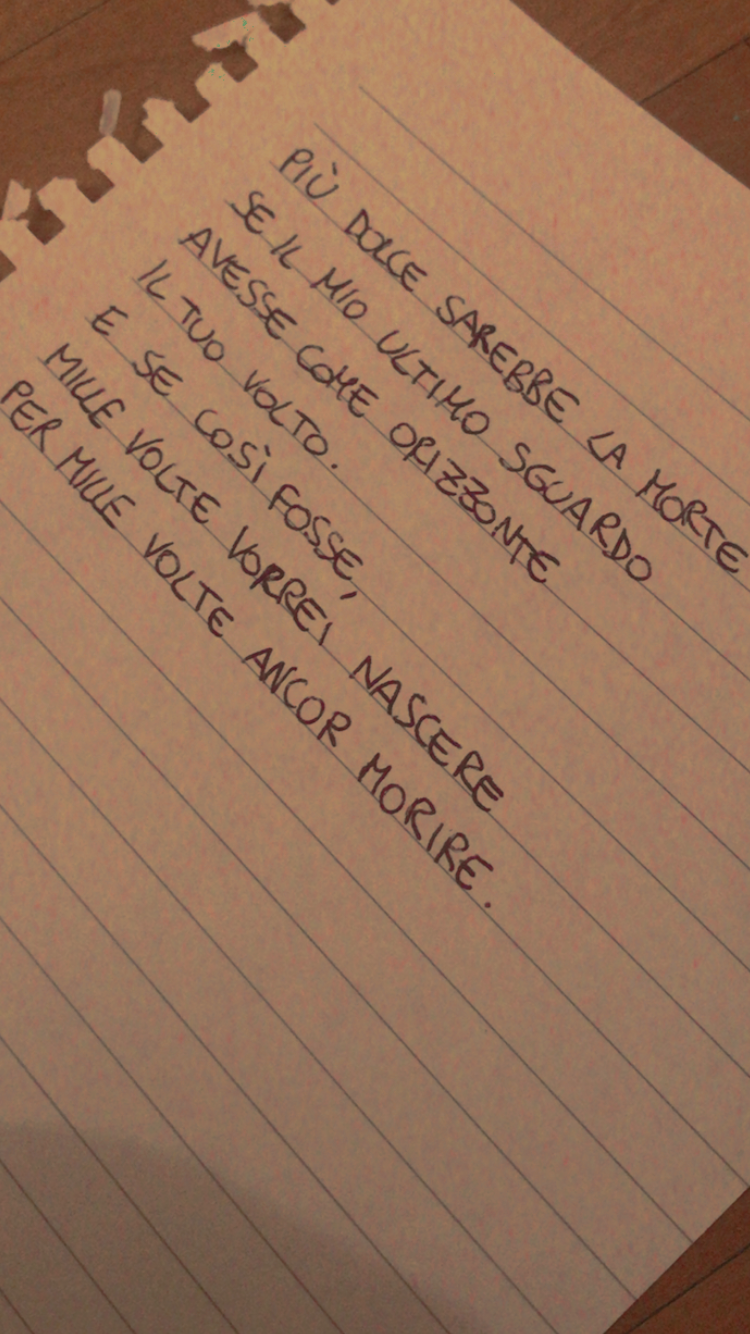 PIÙ DOLCE SAREBBE LA MORTE
SE IL MIO ULTIMO SGUARDO
AVESSE COME ORIZZONTE
IL TUO VOLTO.
E SE COSÌ FOSSE,
MILLE VOLTE VORREI NASCERE
PER MILLE VOLTE ANCOR MORIRE.